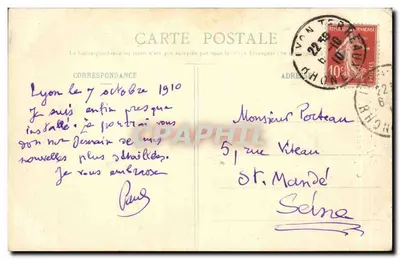 CARTE POSTALE
CORRESPONDANCE
Lyon le 7 octobre 1910
Je suis enfin presque
installé. Je pourrai vous
de mes
nouvelles plus détaillées.
Je vous embrasse
Paul
Monsieur Porteau
5, rue Viteau
St. Mandé
Seine
LYON TERREAUX
RHONE
10